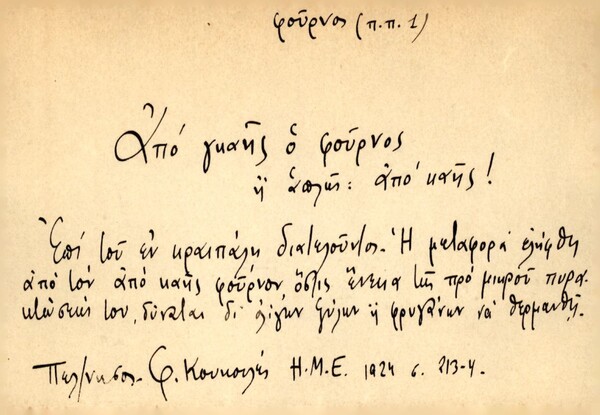 φοῦρνος (π.π. 1)
Ἀπό γκαῆς ὁ φοῦρνος
ἤ ἁπλῶς: ἀπό καῆς!
Ἐπί τοῦ ἐν κραιπάλῃ διατελοῦντος. Ἡ μεταφορά ἐλήφθη
ἀπό τόν ἀπό καῆς φοῦρνον, ὅστις ἕνεκα τῆς πρό μικροῦ πυρα-
κτώσεώς του, δύναται δι' ὀλίγων ξύλων ἤ φρυγάνων νά θερμανθῇ.
Πελ/νησος. Φ. Κουκουλές Η.Μ.Ε. 1924 σ. 213-4.